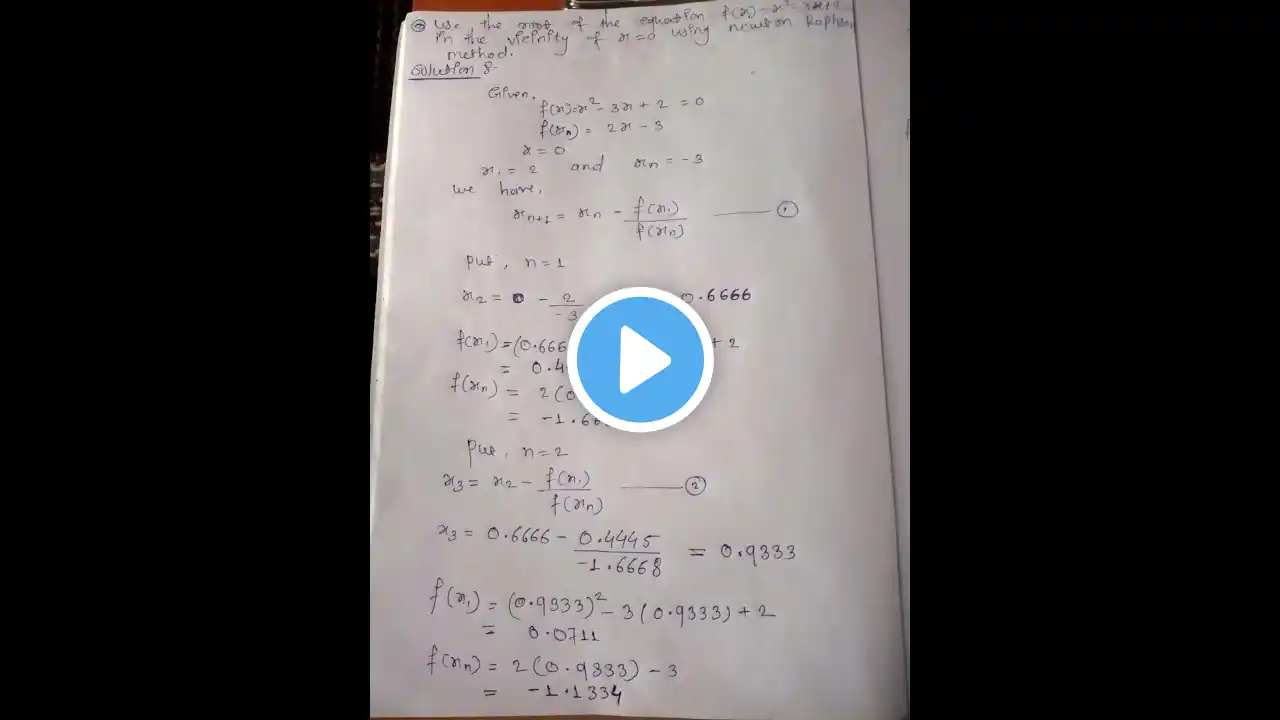 Use the root of the equation f(x) = x²
in the vicinity of x=0 using newton Raphson
method.
Solution :-
Given,
f(x)=x² - 3x + 2 = 0
f(xn) = 2x - 3
x = 0
x₁ = 2 and xn = -3
we have,
xn+1 = xn - f(x₁)/f(xn) ——— ①
put, n = 1
x₂ = 0 - 2/-3 0.6666
f(x₁) = (0.666 + 2
= 0.4
f(xn) = 2(0
= -1.66
put, n = 2
x₃ = x₂ - f(x₁)/f(xn) ——— ②
x₃ = 0.6666 - 0.4445/-1.6668 = 0.9333
f(x₁) = (0.9333)² - 3(0.9333) + 2
= 0.0711
f(xn) = 2(0.9333) - 3
= -1.1334